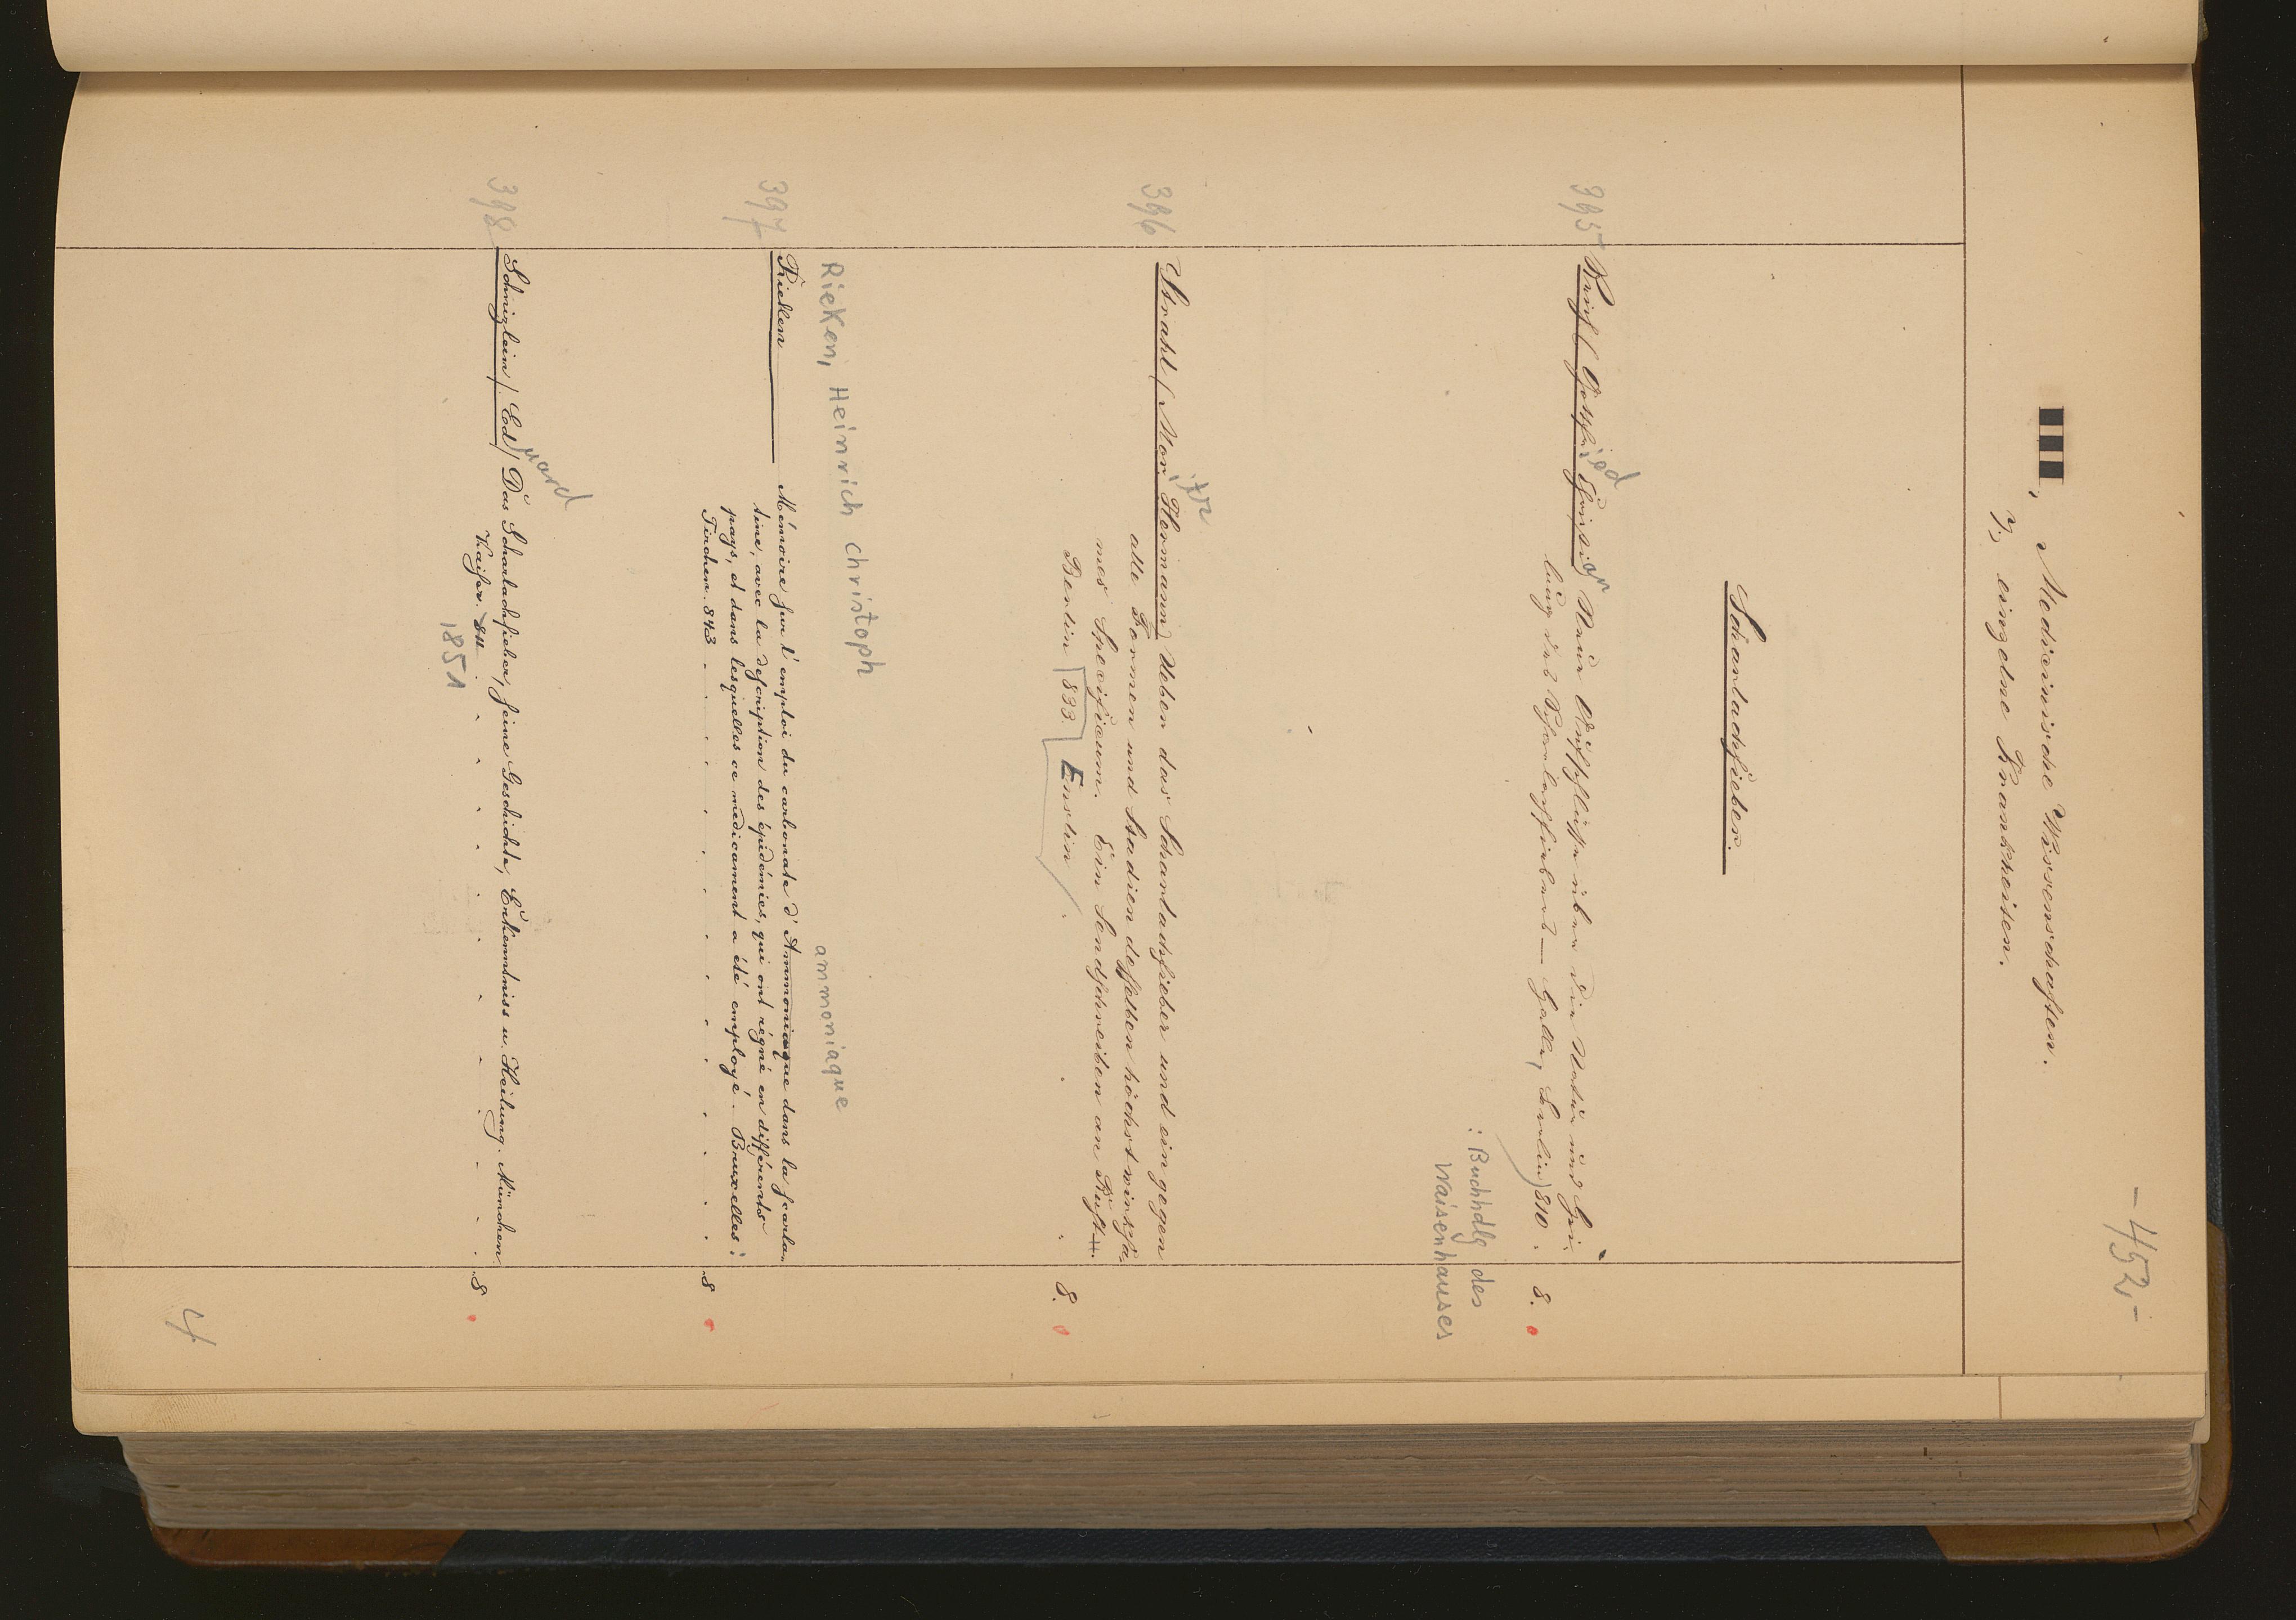 – 452,–
III, Medicinische Wissenschaften.
7, einzelne Krankheiten.
Scharlachfieber.
395 Reich (Gottfried Christian) Neue Aufschlüsse über die Natur und Hei-
lung des Scharlachfiebers — Halle, Berlin) 810. 8.
: Buchhdlg des
Waisenhauses
396 Strahl (Mor.itz Hermann) Ueber das Scharlachfieber und ein gegen
alle Formen und Stadien desselben höchst wirksa-
mes Specificum. Ein Sendschreiben an Rust.
Berlin 833. Enslin 8.
Rieken, Heinrich Christoph
ammoniaque
397 Rieken Mémoire sur l'emploi du carbonate d'Ammoniaque dans la scarla-
tine, avec la description des épidémies, qui ont régné en différents
pays, et dans lesquelles ce medicament a été employé. Bruxelles:
Tircher. 843. 8
398 Schnizlein (Eduard) Das Scharlachfieber, seine Geschichte, Erkenntniss u. Heilung. München
Kaiser. 8
1851
4